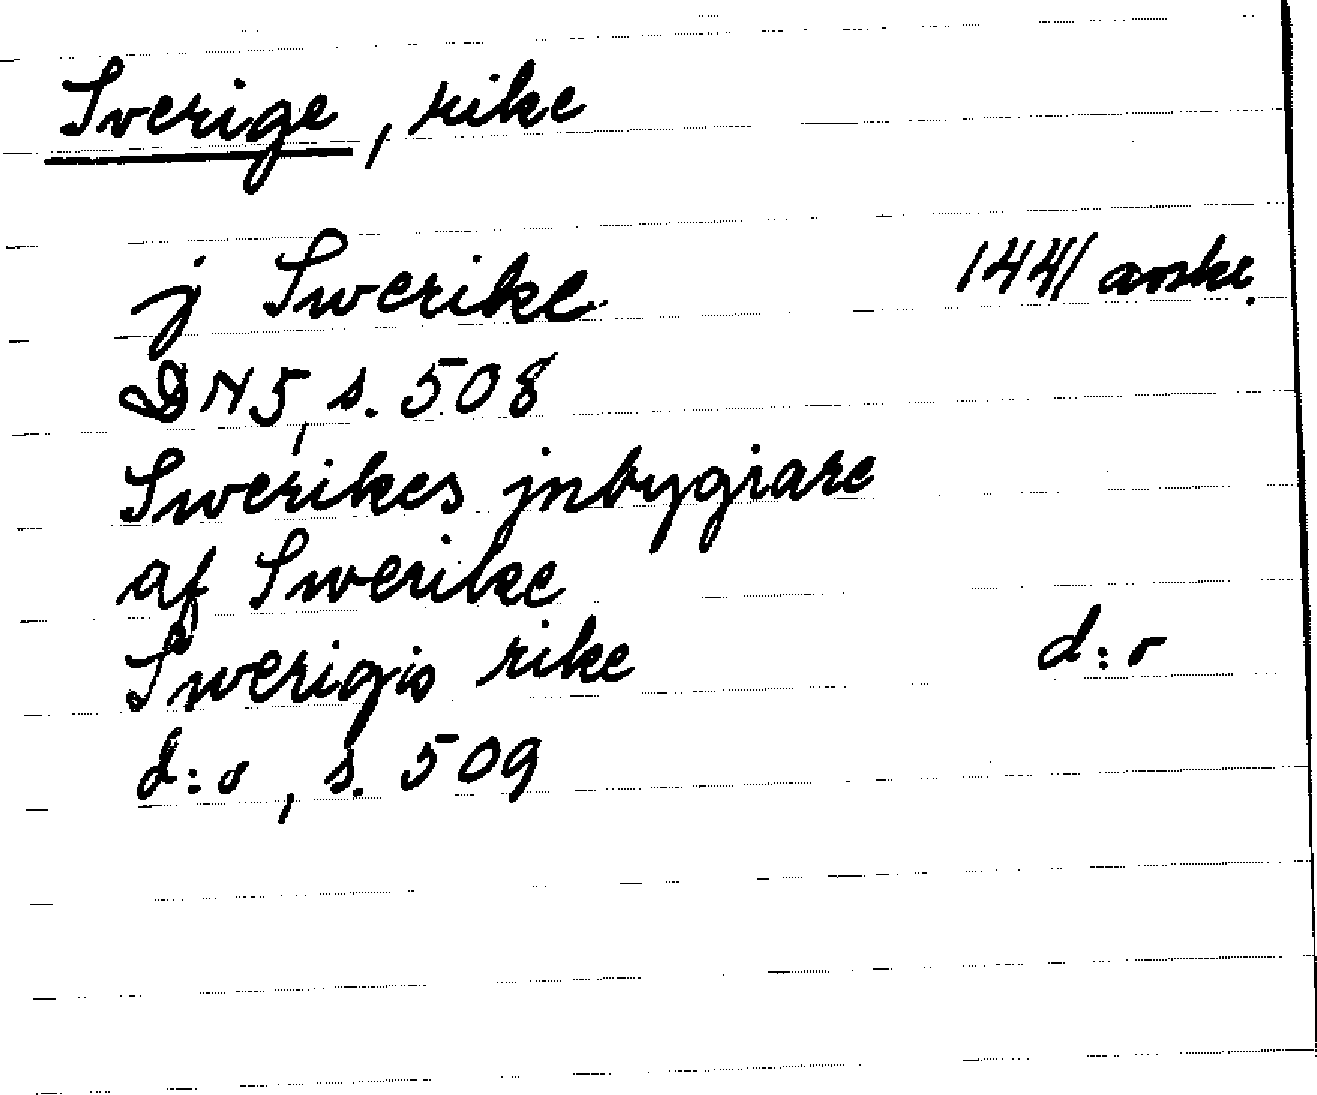 Sverige, rike
j Swerike 1441 avskr.
DN5, s. 508
Swerikes jnbygiare
af Swerike
Swerigis rike d:o
d:o, s. 509